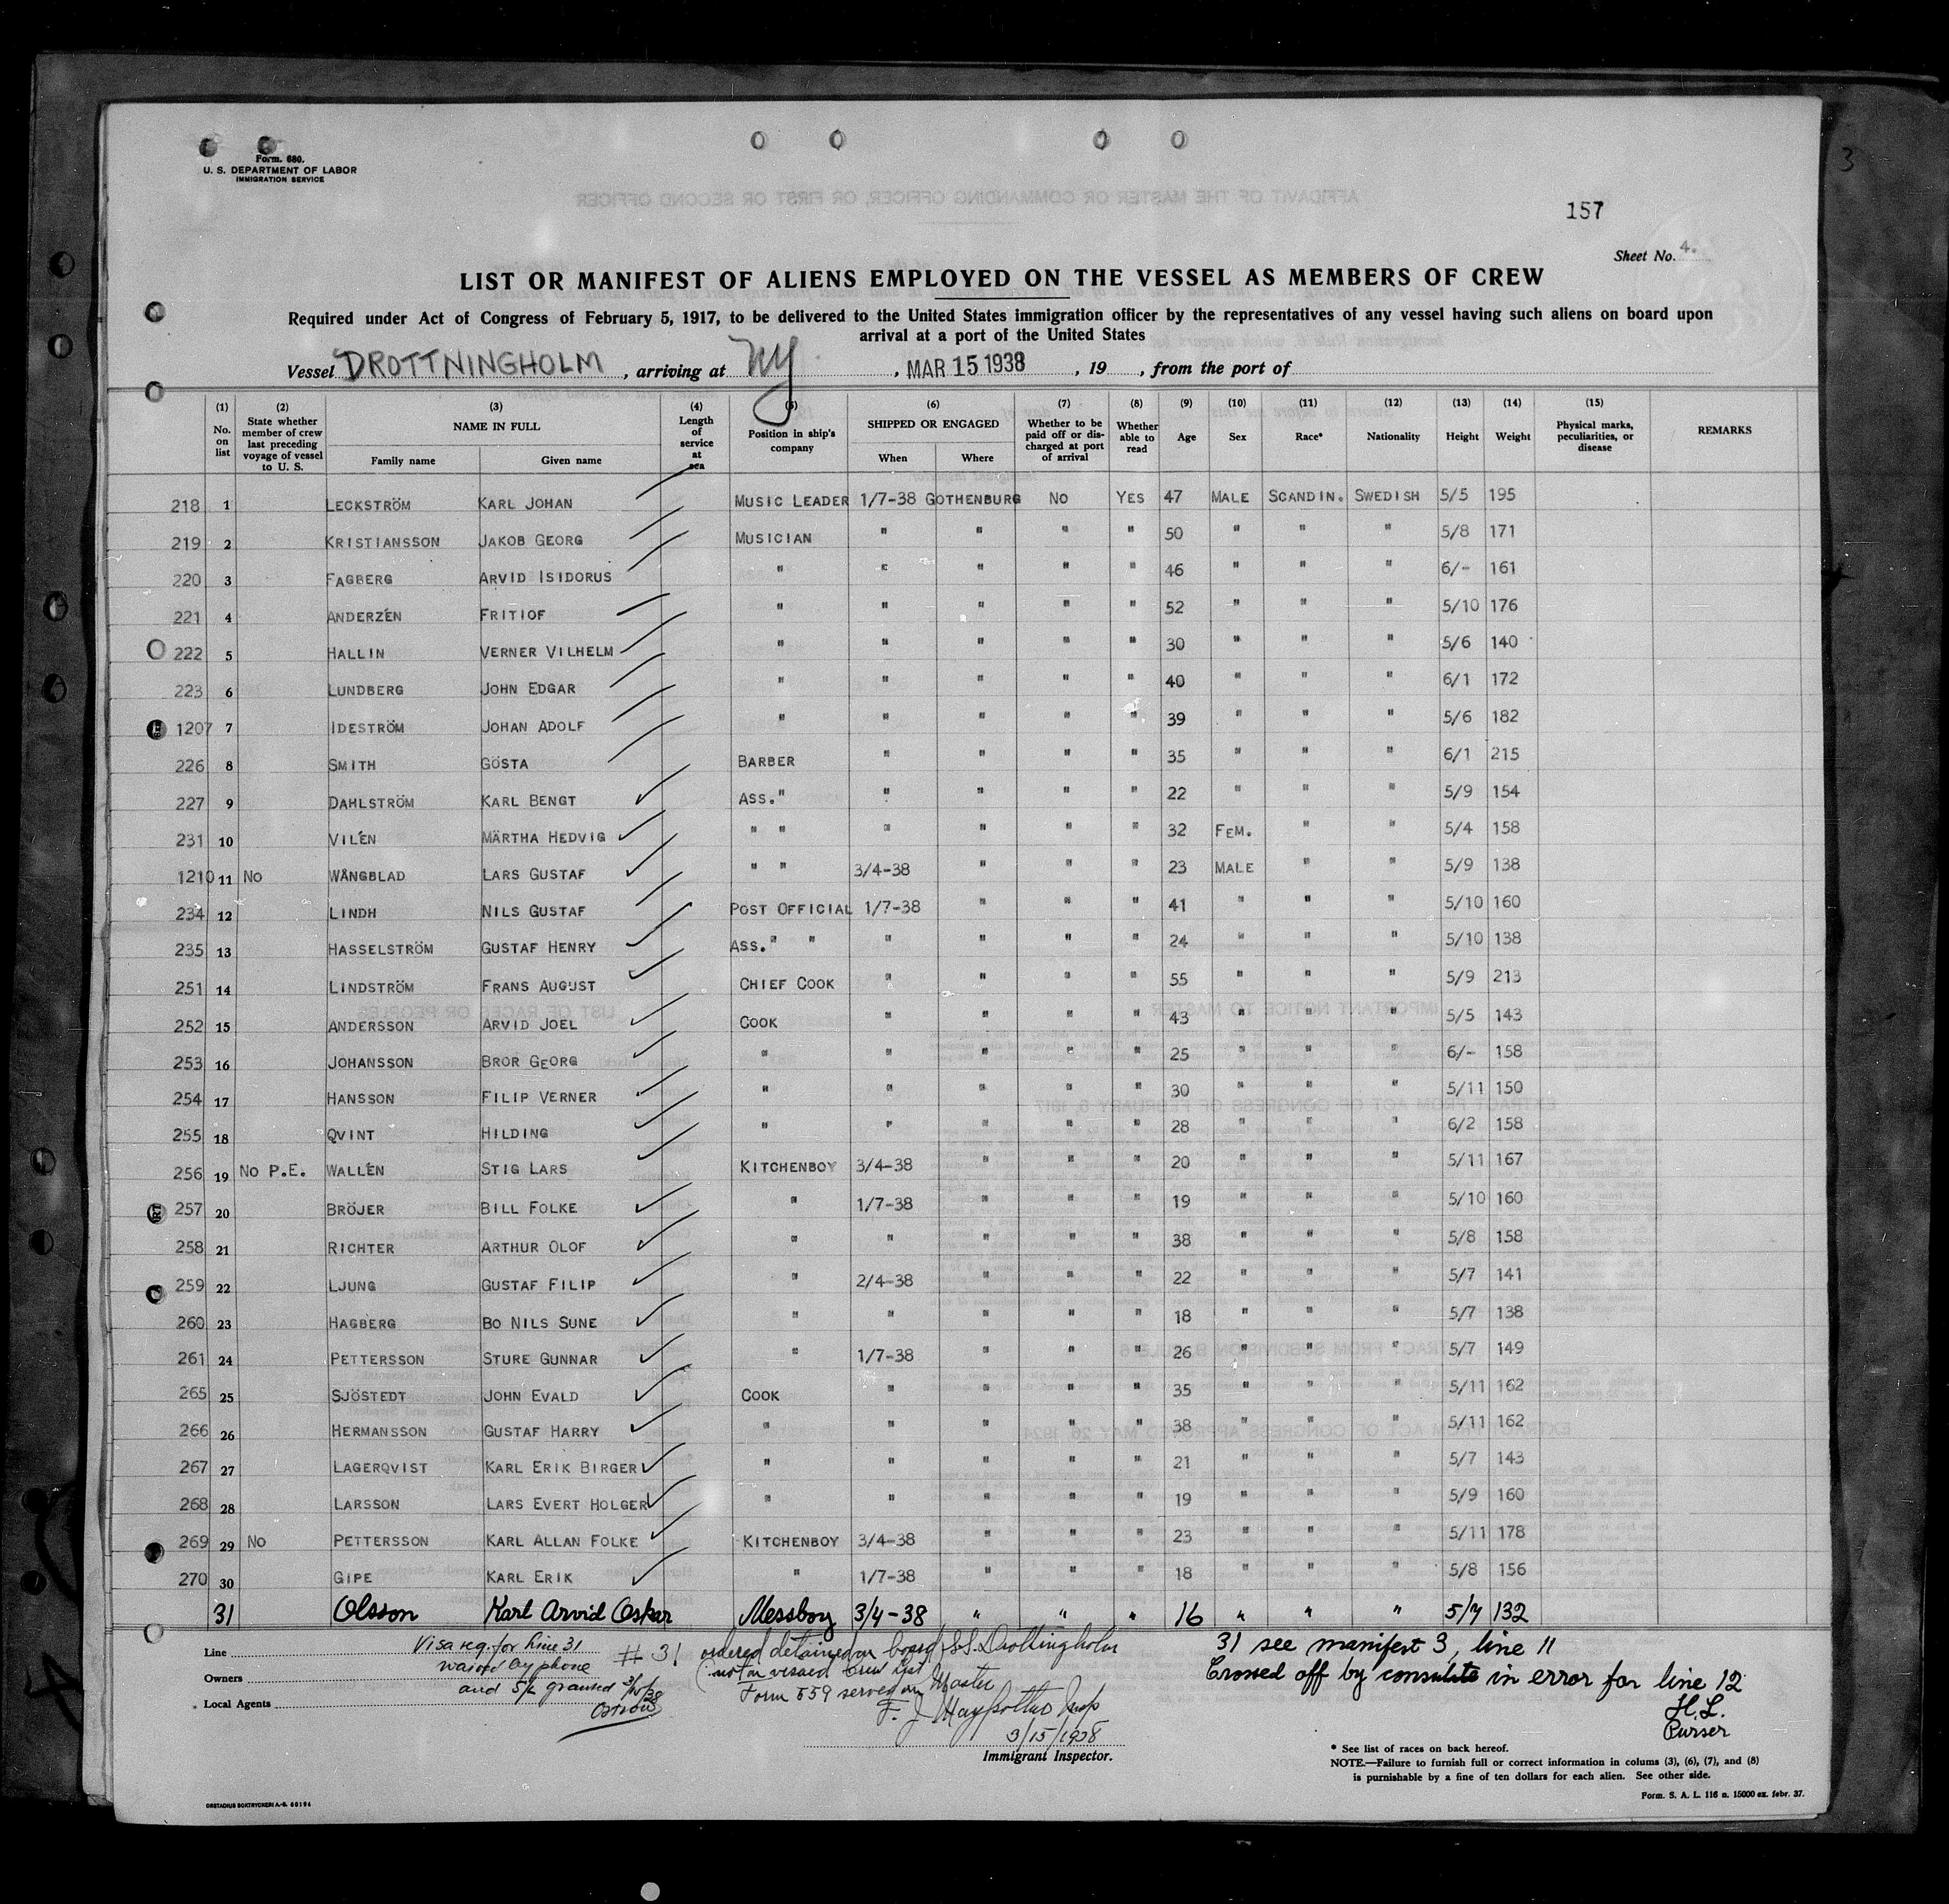 Form. 680.
U. S. DEPARTMENT OF LABOR
IMMIGRATION SERVICE
3
157
Sheet No. 4.
LIST OR MANIFEST OF ALIENS EMPLOYED ON THE VESSEL AS MEMBERS OF CREW
Required under Act of Congress of February 5, 1917, to be delivered to the United States immigration officer by the representatives of any vessel having such aliens on board upon
arrival at a port of the United States
Vessel DROTTNINGHOLM, arriving at NY, MAR 15 1938, 19, from the port of
(1) No. on list (2) State whether member of crew last preceding voyage of vessel to U. S. (3) NAME IN FULL Family name Given name (4) Length of service at sea (5) Position in ship's company (6) SHIPPED OR ENGAGED When Where (7) Whether to be paid off or discharged at port of arrival (8) Whether able to read (9) Age (10) Sex (11) Race* (12) Nationality (13) Height (14) Weight (15) Physical marks, peculiarities, or disease REMARKS
218 1 LECKSTRÖM KARL JOHAN MUSIC LEADER 1/7-38 GOTHENBURG NO YES 47 MALE SCANDIN. SWEDISH 5/5 195
219 2 KRISTIANSSON JAKOB GEORG MUSICIAN " " " " 50 " " " 5/8 171
220 3 FAGBERG ARVID ISIDORUS " " " " " 46 " " " 6/- 161
221 4 ANDERZÉN FRITIOF " " " " " 52 " " " 5/10 176
222 5 HALLIN VERNER VILHELM " " " " " 30 " " " 5/6 140
223 6 LUNDBERG JOHN EDGAR " " " " " 40 " " " 6/1 172
1207 7 IDESTRÖM JOHAN ADOLF " " " " " 39 " " " 5/6 182
226 8 SMITH GÖSTA BARBER " " " " 35 " " " 6/1 215
227 9 DAHLSTRÖM KARL BENGT ASS." " " " " 22 " " " 5/9 154
231 10 VILÉN MÄRTHA HEDVIG " " " " " " 32 FEM. " " 5/4 158
1210 11 NO WÅNGBLAD LARS GUSTAF " " 3/4-38 " " " 23 MALE " " 5/9 138
234 12 LINDH NILS GUSTAF POST OFFICIAL 1/7-38 " " " 41 " " " 5/10 160
235 13 HASSELSTRÖM GUSTAF HENRY ASS." " " " " " 24 " " " 5/10 138
251 14 LINDSTRÖM FRANS AUGUST CHIEF COOK " " " " 55 " " " 5/9 213
252 15 ANDERSSON ARVID JOEL COOK " " " " 43 " " " 5/5 143
253 16 JOHANSSON BROR GEORG " " " " " 25 " " " 6/- 158
254 17 HANSSON FILIP VERNER " " " " " 30 " " " 5/11 150
255 18 QVINT HILDING " " " " " 28 " " " 6/2 158
256 19 NO P.E. WALLÉN STIG LARS KITCHENBOY 3/4-38 " " " 20 " " " 5/11 167
257 20 BRÖJER BILL FOLKE " 1/7-38 " " " 19 " " " 5/10 160
258 21 RICHTER ARTHUR OLOF " " " " " 38 " " " 5/8 158
259 22 LJUNG GUSTAF FILIP " 2/4-38 " " " 22 " " " 5/7 141
260 23 HAGBERG BO NILS SUNE " " " " " 18 " " " 5/7 138
261 24 PETTERSSON STURE GUNNAR " 1/7-38 " " " 26 " " " 5/7 149
265 25 SJÖSTEDT JOHN EVALD COOK " " " " 35 " " " 5/11 162
266 26 HERMANSSON GUSTAF HARRY " " " " " 38 " " " 5/11 162
267 27 LAGERQVIST KARL ERIK BIRGER " " " " " 21 " " " 5/7 143
268 28 LARSSON LARS EVERT HOLGER " " " " " 19 " " " 5/9 160
269 29 NO PETTERSSON KARL ALLAN FOLKE KITCHENBOY 3/4-38 " " " 23 " " " 5/11 178
270 30 GIPE KARL ERIK " 1/7-38 " " " 18 " " " 5/8 156
31 Olsson Karl Arvid Oskar Messboy 3/4-38 " " " 16 " " " 5/7 132
Line
Owners
Local Agents
Visa req. for line 31
waived by phone
and 5/L granted 3/15/38
Ostrow
# 31 ordered detained on board S.S. Drottningholm
(not on visaed crew list
Form 559 served on Master
F. J. Insp
3/15/1938
Immigrant Inspector.
31 see manifest 3, line 11
Crossed off by consulate in error for line 12
H.L.
Purser
* See list of races on back hereof.
NOTE.—Failure to furnish full or correct information in colums (3), (6), (7), and (8)
is purnishable by a fine of ten dollars for each alien. See other side.
ORSTADIUS BOKTRYCKERI A.-B. 60194
Form. S. A. L. 116 n. 15000 ex. febr. 37.